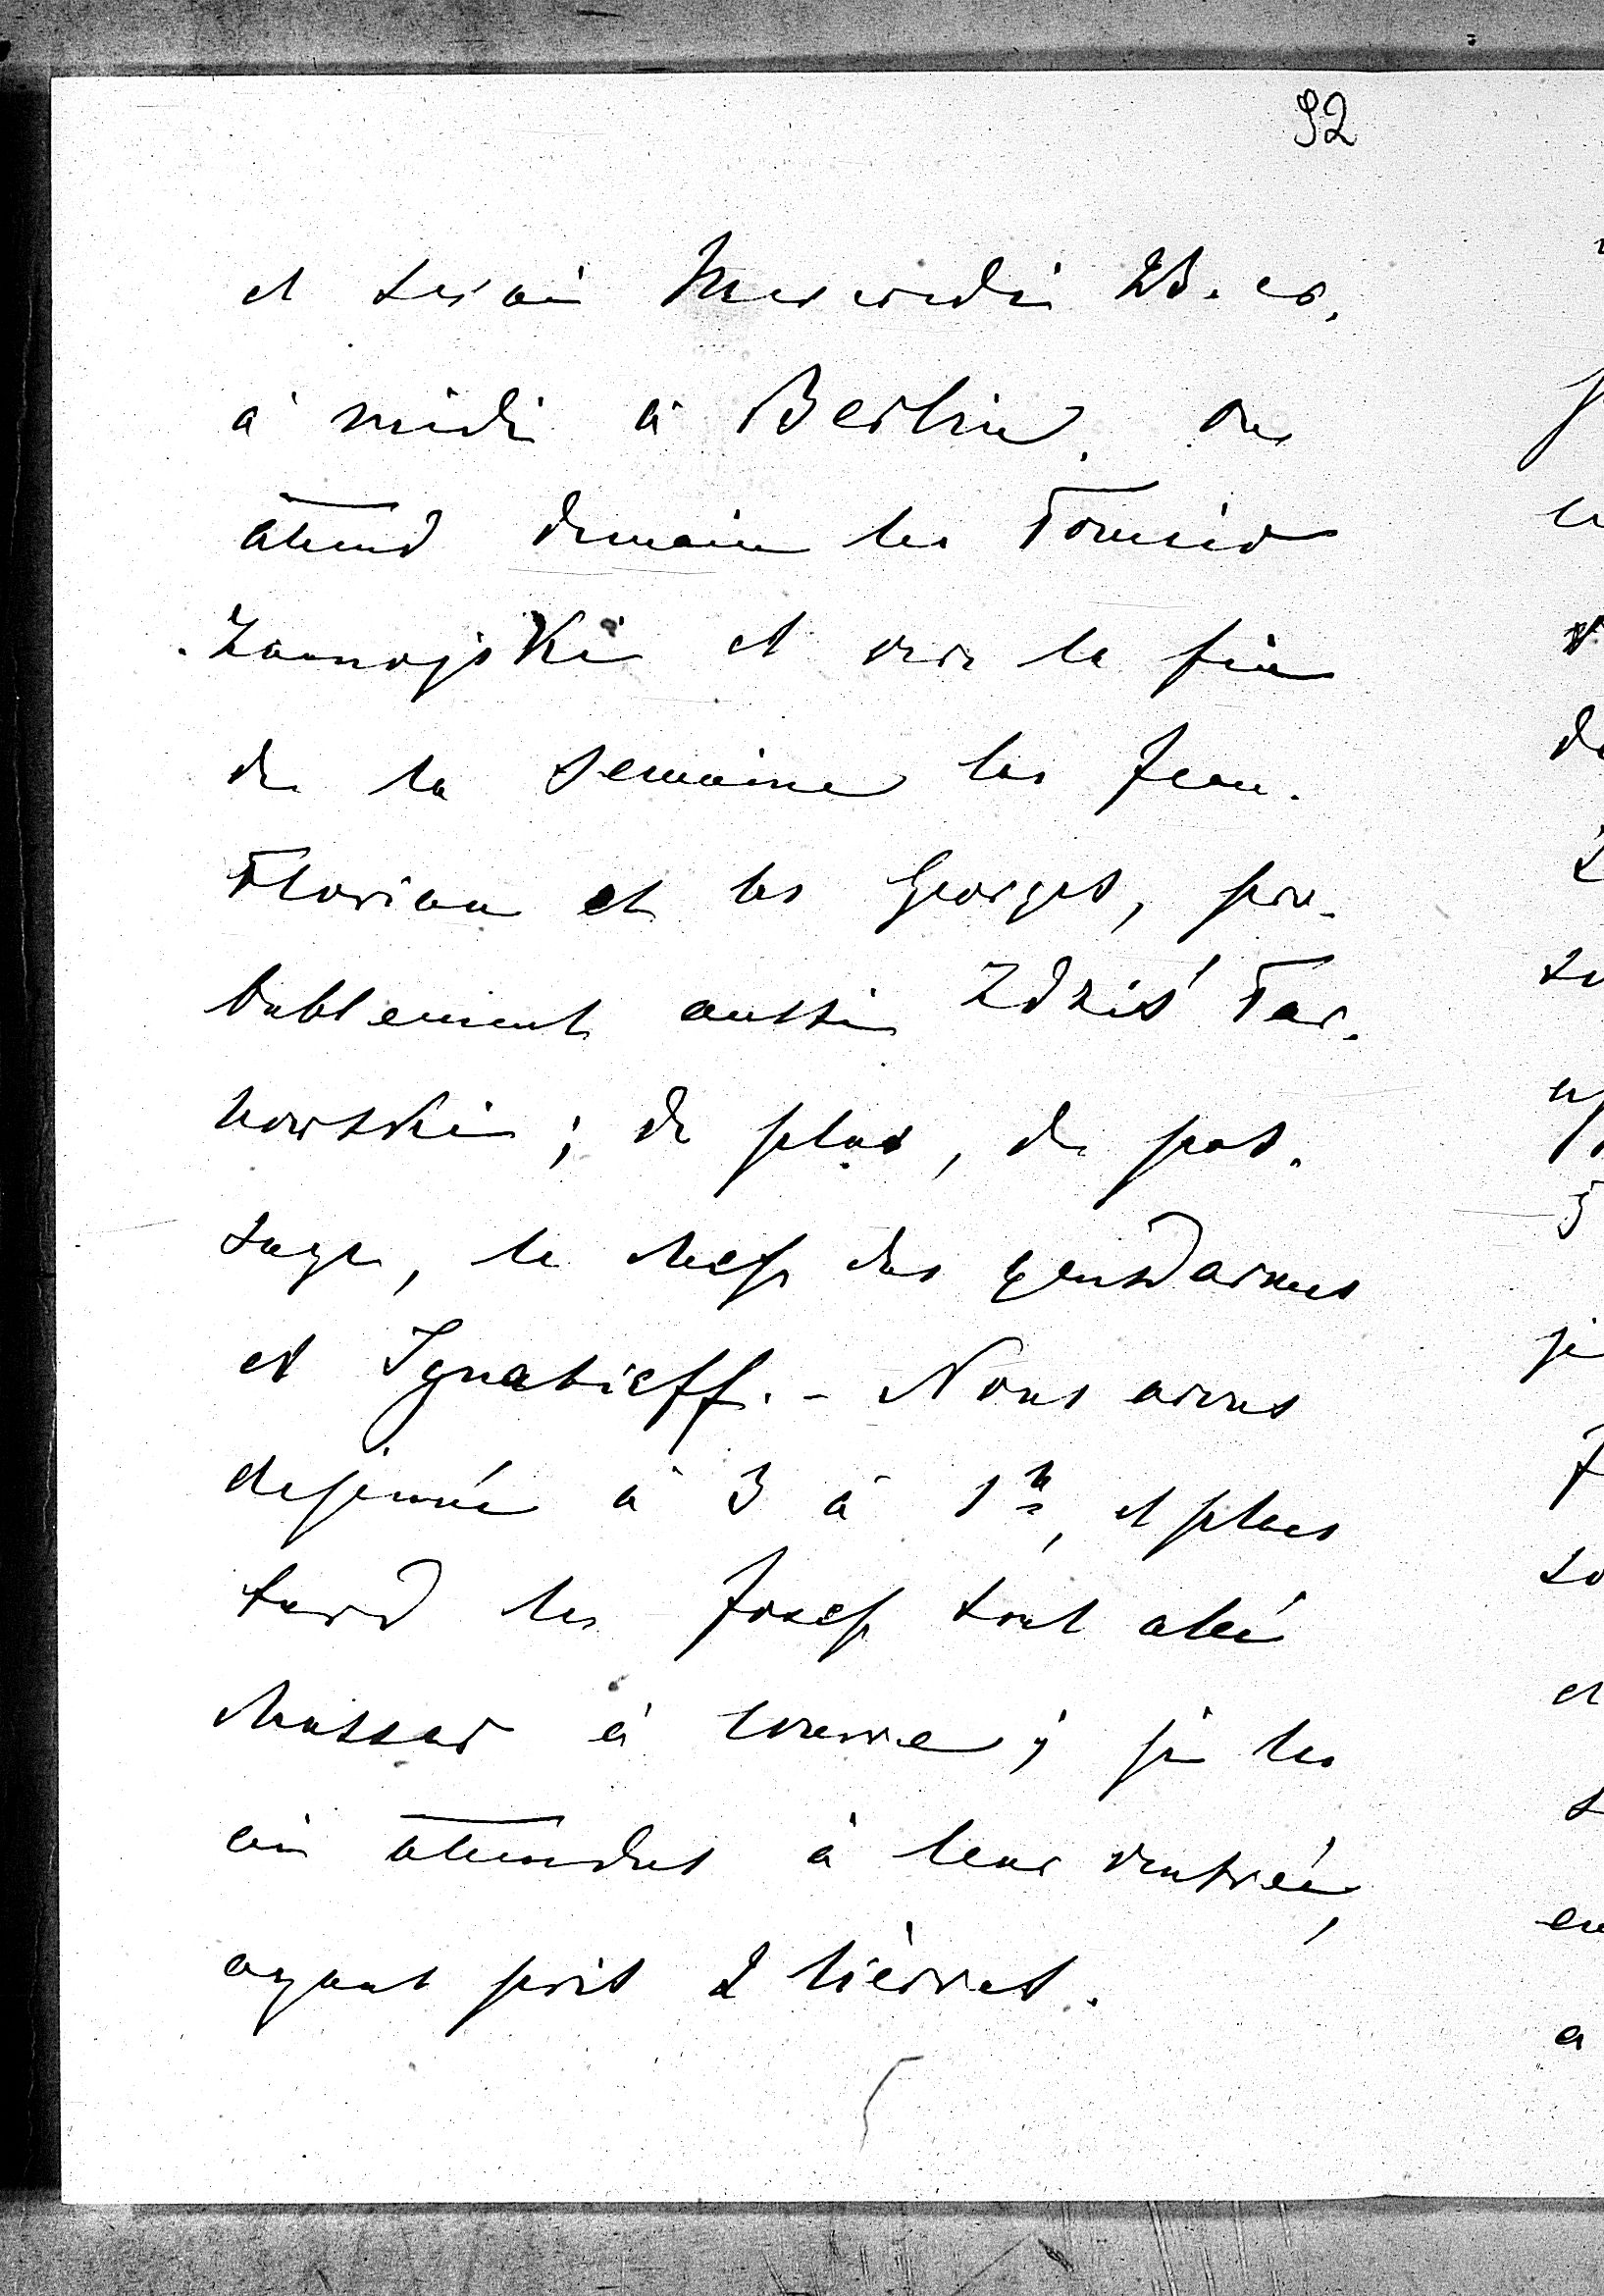 92
et serai Mercredi 23. cr.
à midi à Berlin. On
attend demain les Tomas
Zamojski et vers la fin
de la semaine les Jean.
Florian et les Georges, pro-
bablement aussi Zdziś Tar-
nowski; de plus, de pas-
sage, le chef des gensdarmes
et Ignatieff. - Nous avons
dejeuné à 3 à 1h, et plus
tard les Josef sont allé
chasser à courre; je les
ai attendus à leur rentrée,
ayant pris 2 lièvres.